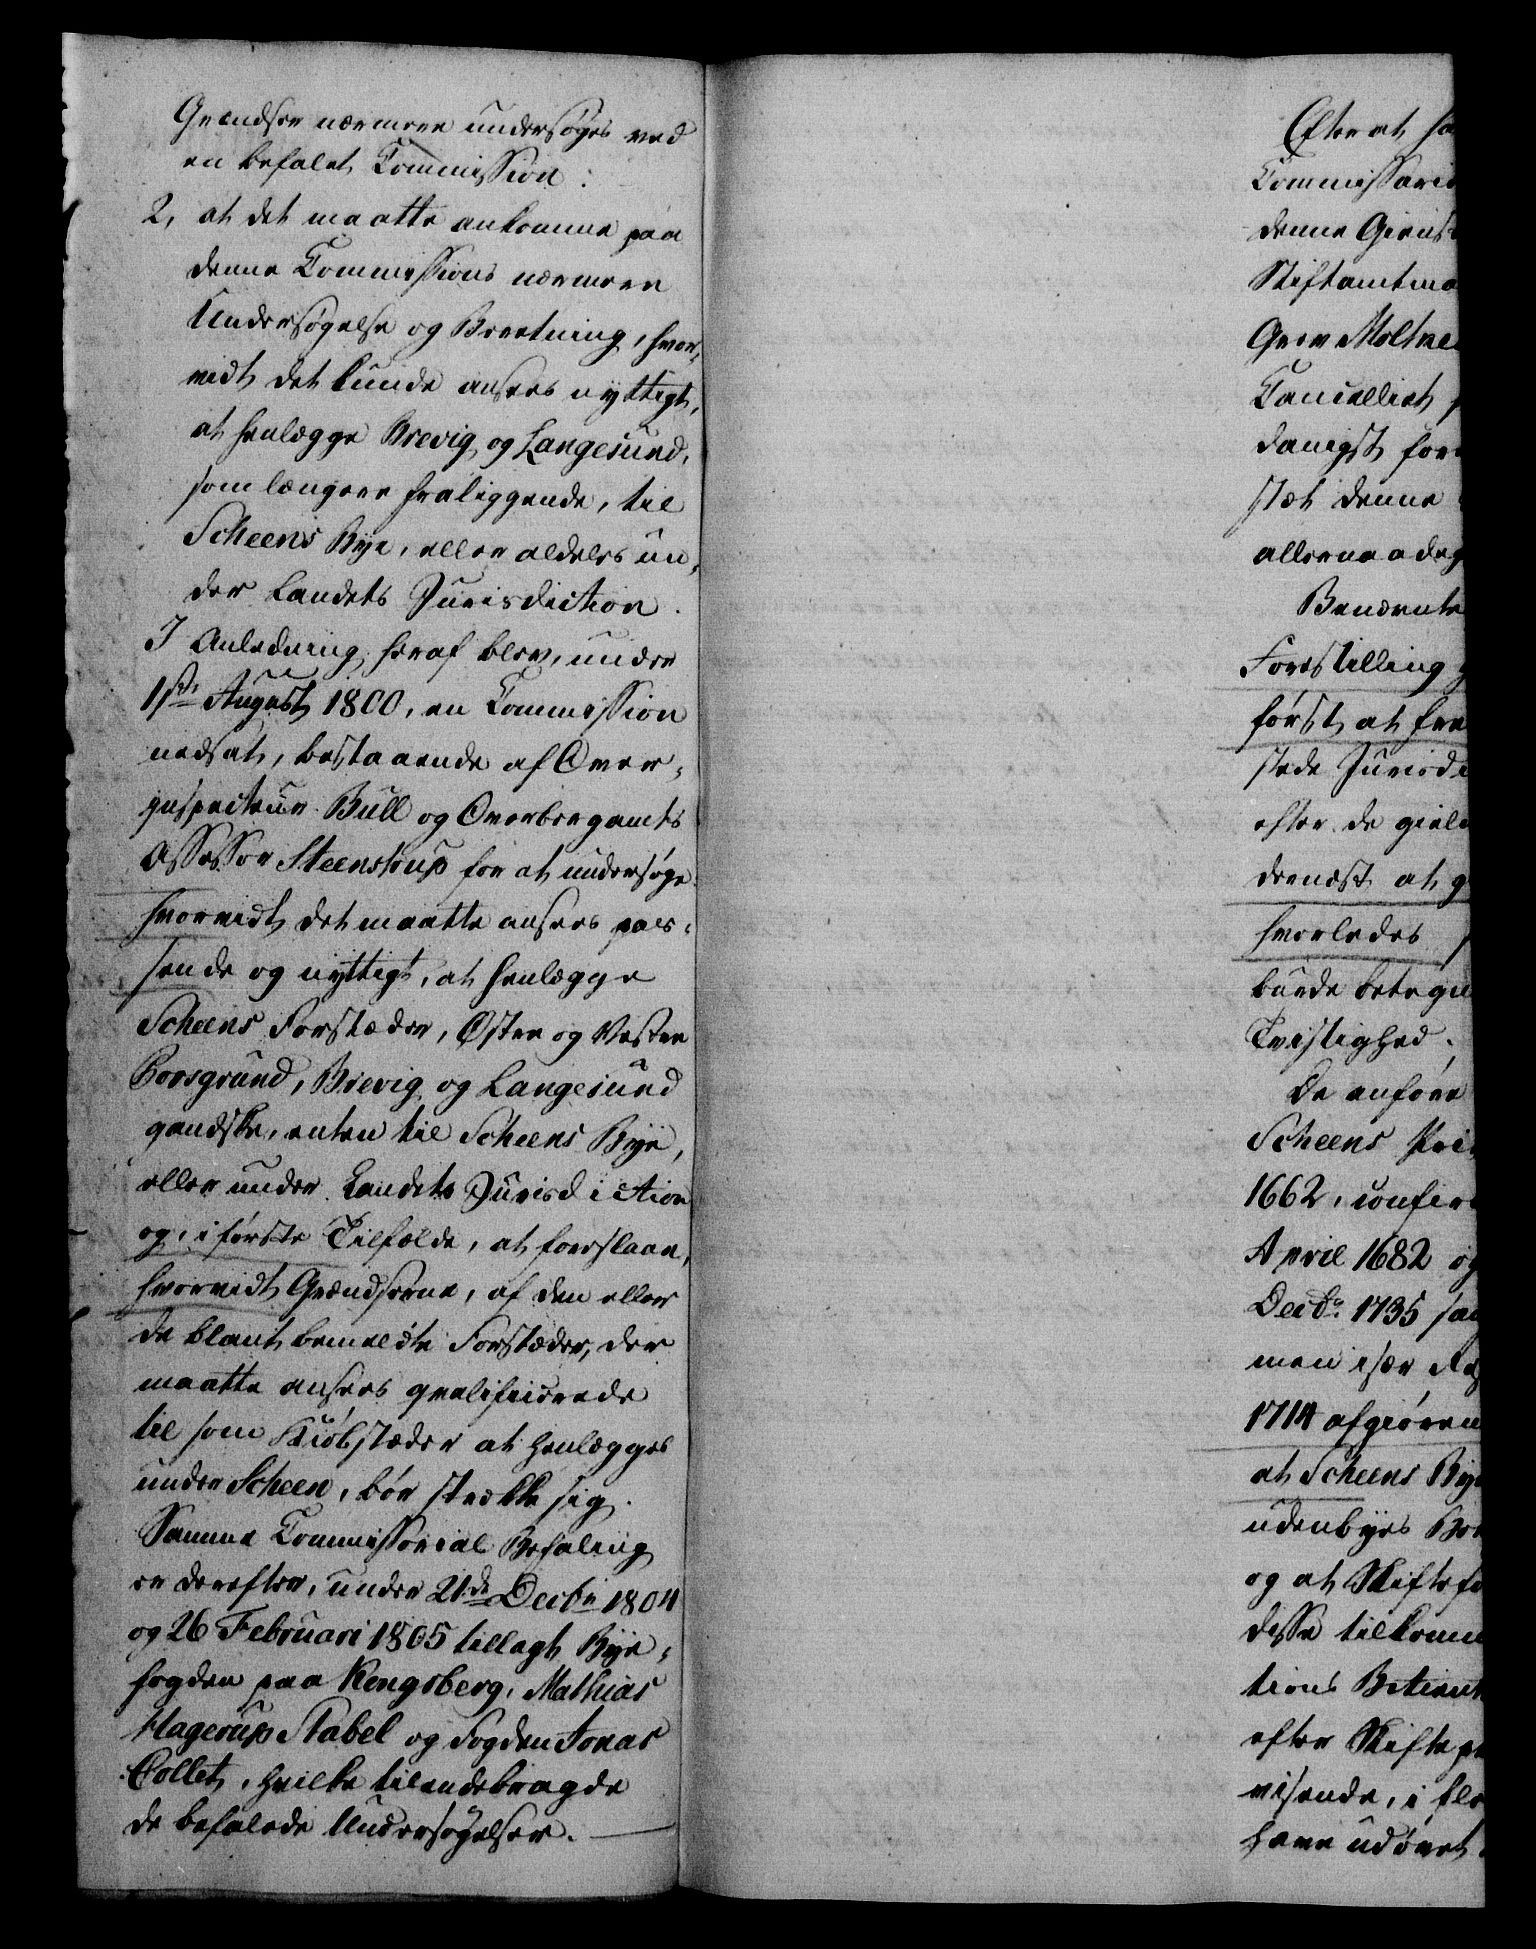 Grændser nærmere undersøges ved
en befalet Commission.
2, at det maatte ankomme paa
denne Commissions nærmere
Undersøgelse og Beretning, hvor-
vidt det kunde ansees nyttigt,
at henlægge Brevig og Langesund,
som længere fraliggende, til
Scheens Bye, eller aldeles un-
der Landets Jurisdiction.
I Anledning heraf blev, under
1ste August 1800, en Commission
nedsat, bestaaende af Over-
inspecteur Bull og Overbergamts
Assessor Steenstrup for at undersøge
hvorvidt det maatte ansees pas-
sende og nyttigt, at henlægge
Scheens Forstæder, Østre og Vestre
Porsgrund, Brevig og Langesund
gandske, enten til Scheens Bye,
eller under Landets Jurisdiction
og, i første Tilfælde, at foreslaae,
hvorvidt Grændserne, af den eller
de blant bemeldte Forstæder, der
maatte ansees qvalificerede
til som Kiøbstæder at henlægges
under Scheen, bør strække sig.
Samme Commissorial Befaling
er derefter, under 21de Decbr 1804
og 26 Februari 1805 tillagt Bye-
fogden paa Kongsberg, Mathias
Hagerup Stabel og Fogden Jonas
Collet, hvilke tilendebragde
de befalede Undersøgelser.
Efter at ha
Commissari
denne Gienst
Stiftamtma
Grev Moltke
Cancelliet
danigst for
stæt denne
allernaadg
Benævnte
Forestilling
først at fre
stede Jurisdi
efter de gield
dernæst at g
hvorledes
burde betegn
Tvistighed.
De anføre
Scheens Pri
1662, confir
April 1682 og
Decbr. 1735 sa
men især Re
1714 afgiøren
at Scheens Bye
udenbyes Bo
og at Skiftefo
disse tilkomm
tions Betient
efter Skifte pa
visende, i fle
have udøvet